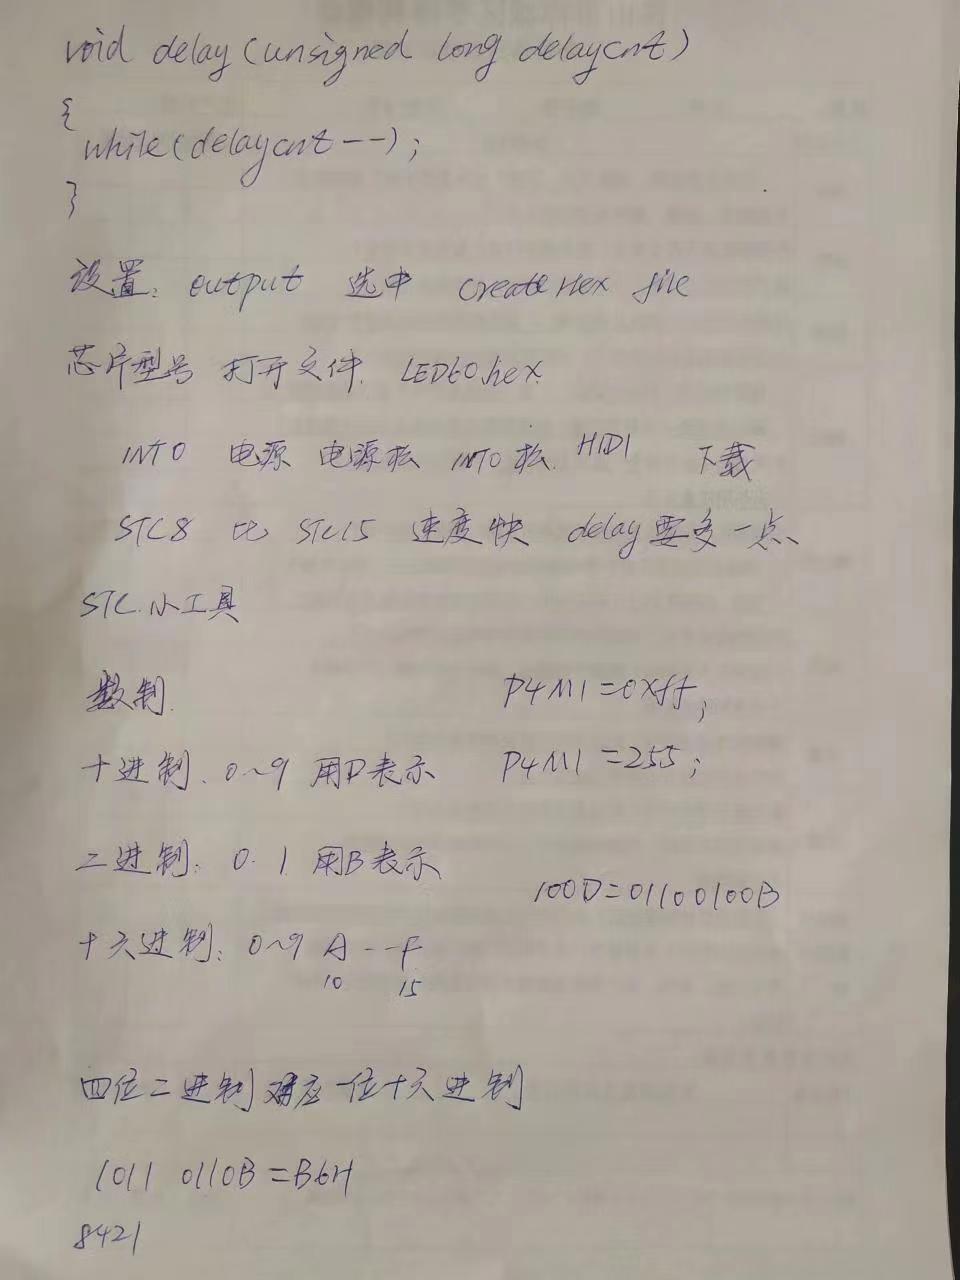 void delay(unsigned long delaycnt)
{
while(delaycnt--);
}
设置: output 选中 Create Hex file
芯片型号 打开文件. LED60.hex.
INT0 电源 电源松 INT0松. HID1 下载
STC8 比 STC15 速度快 delay要多一点
STC小工具
数制. P4M1=0xff;
十进制. 0~9 用D表示 P4M1=255;
二进制: 0. 1 用B表示
100D=01100100B
十六进制: 0~9 A--F
10 15
四位二进制对应一位十六进制
1011 0110B=B6H
8421